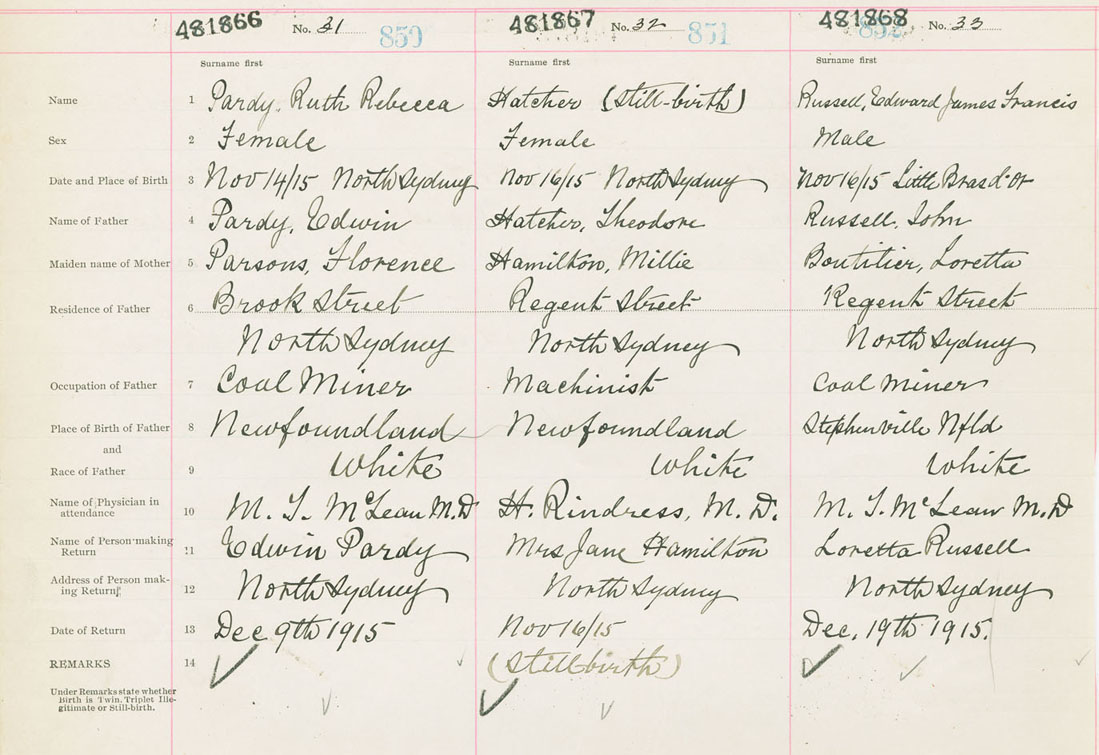 481866 No. 31 850 481867 No. 32 851 481868 No. 33
Surname first Surname first Surname first
Name 1 Pardy, Ruth Rebecca Hatcher (Still-birth) Russell, Edward James Francis
Sex 2 Female Female Male
Date and Place of Birth 3 Nov 14/15 North Sydney Nov 16/15 North Sydney Nov 16/15 Little Bras d'Or
Name of Father 4 Pardy, Edwin Hatcher, Theodore Russell, John
Maiden name of Mother 5 Parsons, Florence Hamilton, Millie Boutilier, Loretta
Residence of Father 6 Brook Street Regent Street Regent Street
North Sydney North Sydney North Sydney
Occupation of Father 7 Coal Miner Machinist Coal Miner
Place of Birth of Father 8 Newfoundland Newfoundland Stephenville Nfld
and
Race of Father 9 White White White
Name of Physician in
attendance 10 M. T. McLean M.D H. Rindress, M. D. M. T. McLean M.D
Name of Person making
Return 11 Edwin Pardy Mrs Jane Hamilton Loretta Russell
Address of Person mak-
ing Return 12 North Sydney North Sydney North Sydney
Date of Return 13 Dec 9th 1915 Nov 16/15 Dec. 19th 1915.
REMARKS 14 (Stillbirth)
Under Remarks state whether
Birth is Twin, Triplet Ille-
gitimate or Still-birth.